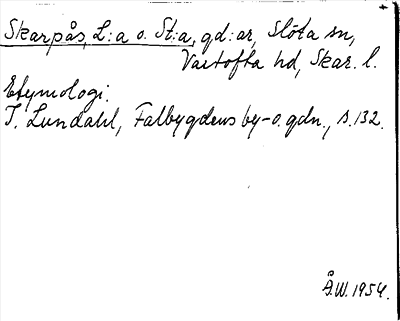 Skarpås, L:a o. St:a, gd:ar, Slöta sn,
Vartofta hd, Skar. l.
Etymologi.
I. Lundahl, Falbygdens by- o. gdn., s. 132.
Å.W. 1954.